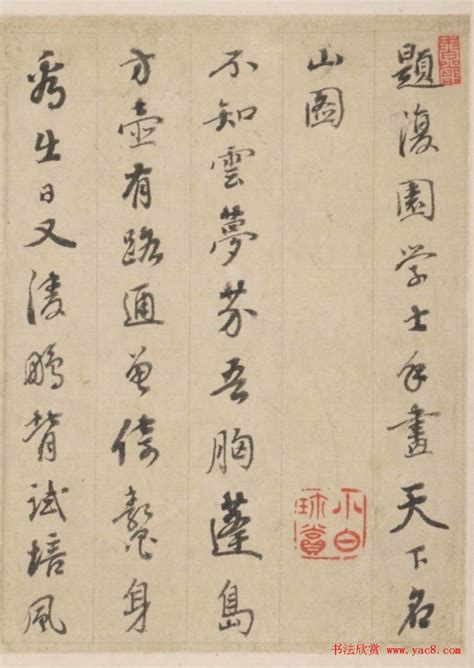 題復園学士手畫天下名
山圖
不知雲夢芥吾胸蓬島
方壺有路通曾倚鼇身
看生日又淩鵬背試培風
小白
珎賞
书法欣赏 www.yac8.com